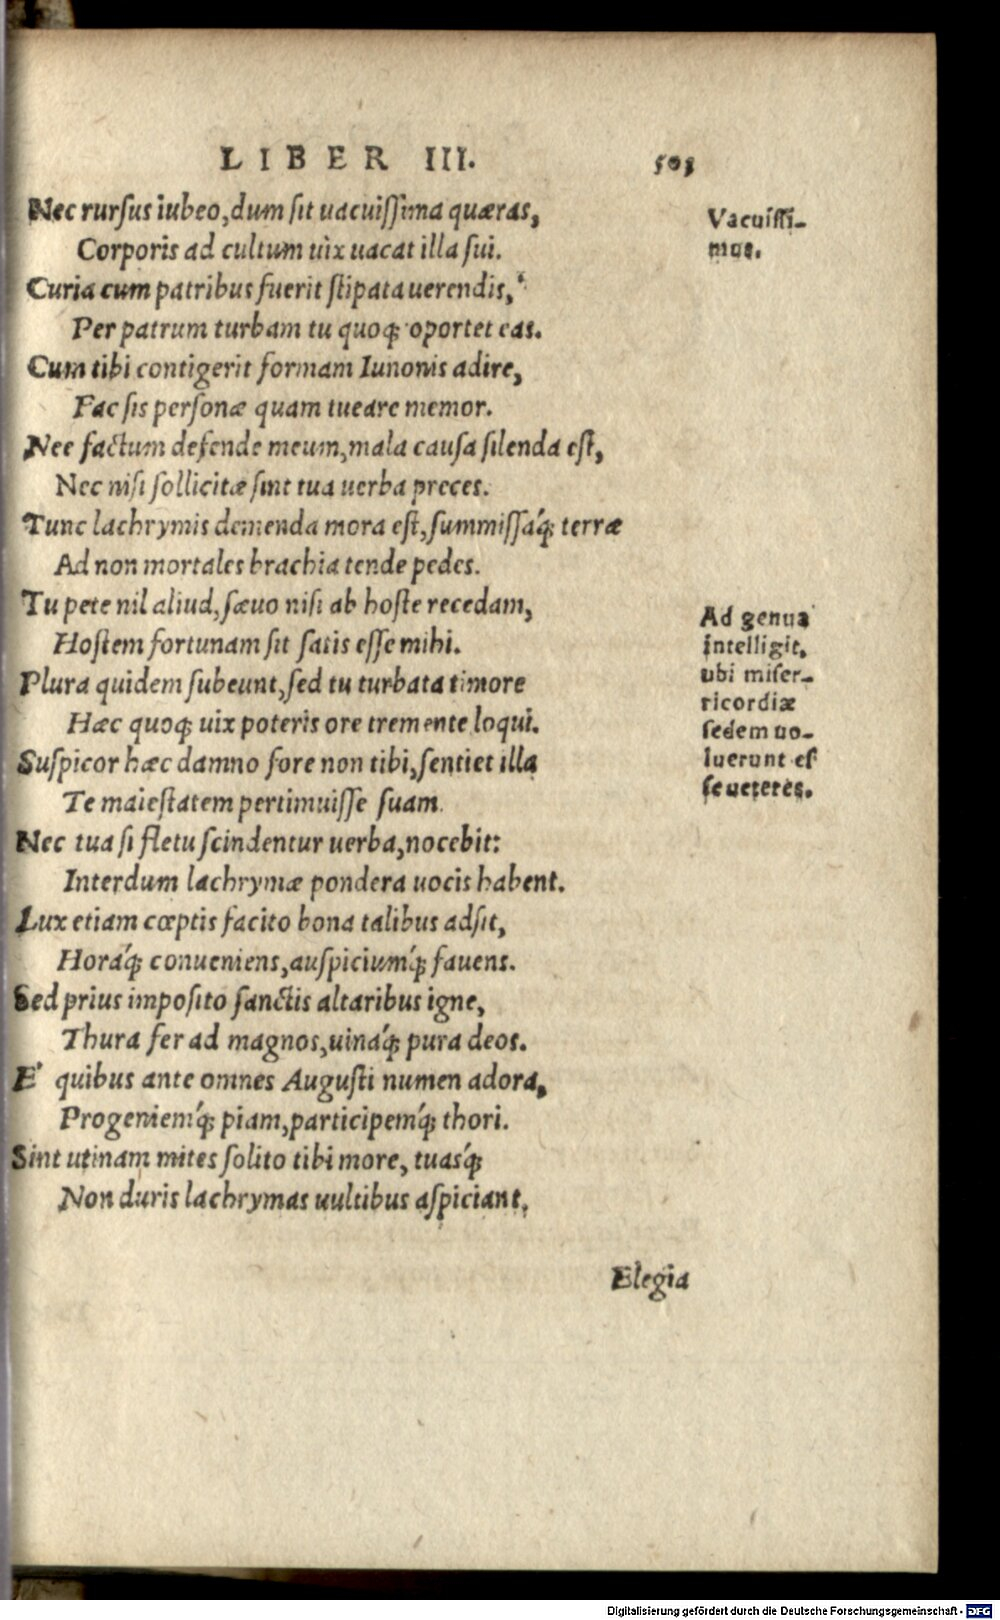 LIBER III. 503
Nec rursus iubeo, dum sit uacuissima quæras,
Corporis ad cultum uix uacat illa sui.
Curia cum patribus fuerit stipata uerendis,
Per patrum turbam tu quoq; oportet eas.
Cum tibi contigerit formam Iunonis adire,
Fac sis personæ quam tueare memor.
Nec factum defende meum, mala causa silenda est,
Nec nisi sollicitæ sint tua uerba preces.
Tunc lachrymis demenda mora est, summissáq; terræ
Ad non mortales brachia tende pedes.
Tu pete nil aliud, sæuo nisi ab hoste recedam,
Hostem fortunam sit satis esse mihi.
Plura quidem subeunt, sed tu turbata timore
Hæc quoq; uix poteris ore tremente loqui.
Suspicor hæc damno fore non tibi, sentiet illa
Te maiestatem pertimuisse suam.
Nec tua si fletu scindentur uerba, nocebit:
Interdum lachrymæ pondera uocis habent.
Lux etiam cœptis facito bona talibus adsit,
Horáq; conueniens, auspiciumq́; fauens.
Sed prius imposito sanctis altaribus igne,
Thura fer ad magnos, uináq; pura deos.
E' quibus ante omnes Augusti numen adora,
Progeniemq́; piam, participemq́; thori.
Sint utinam mites solito tibi more, tuasq́;
Non duris lachrymas uultibus aspiciant.
Vacuissi-
mus.
Ad genua
intelligit,
ubi miser-
ricordiæ
sedem uo-
luerunt es
se ueteres.
Elegia
Digitalisierung gefördert durch die Deutsche Forschungsgemeinschaft - DFG